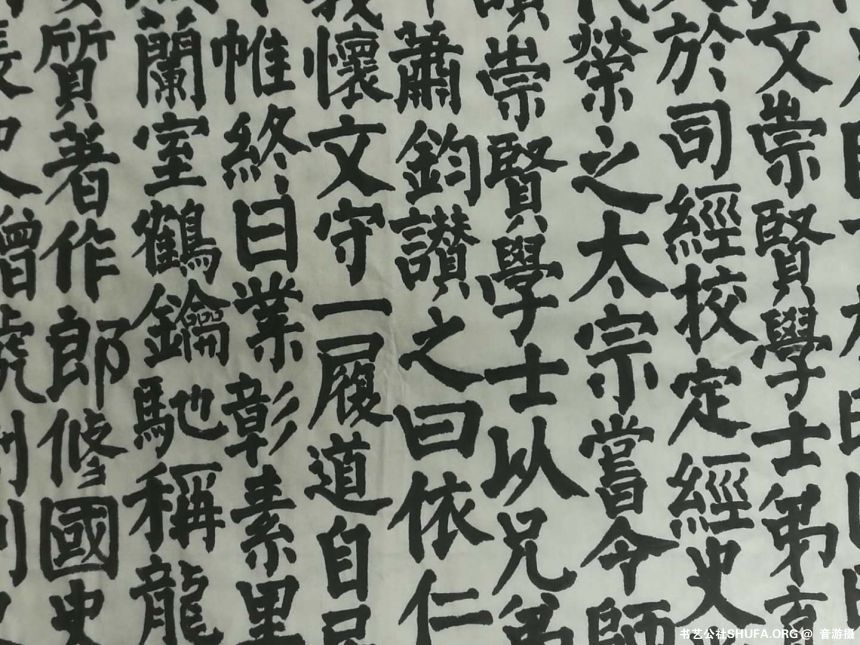 文崇賢學士弟
於司經校定經史
榮之太宗嘗令師
崇賢學士以兄弟
蕭鈞讃之曰依仁
懷文守一履道自
帷終日業彰素里
蘭室鶴鑰馳稱龍
質著作郎修國史
书艺公社SHUFA.ORG @ 音游摄